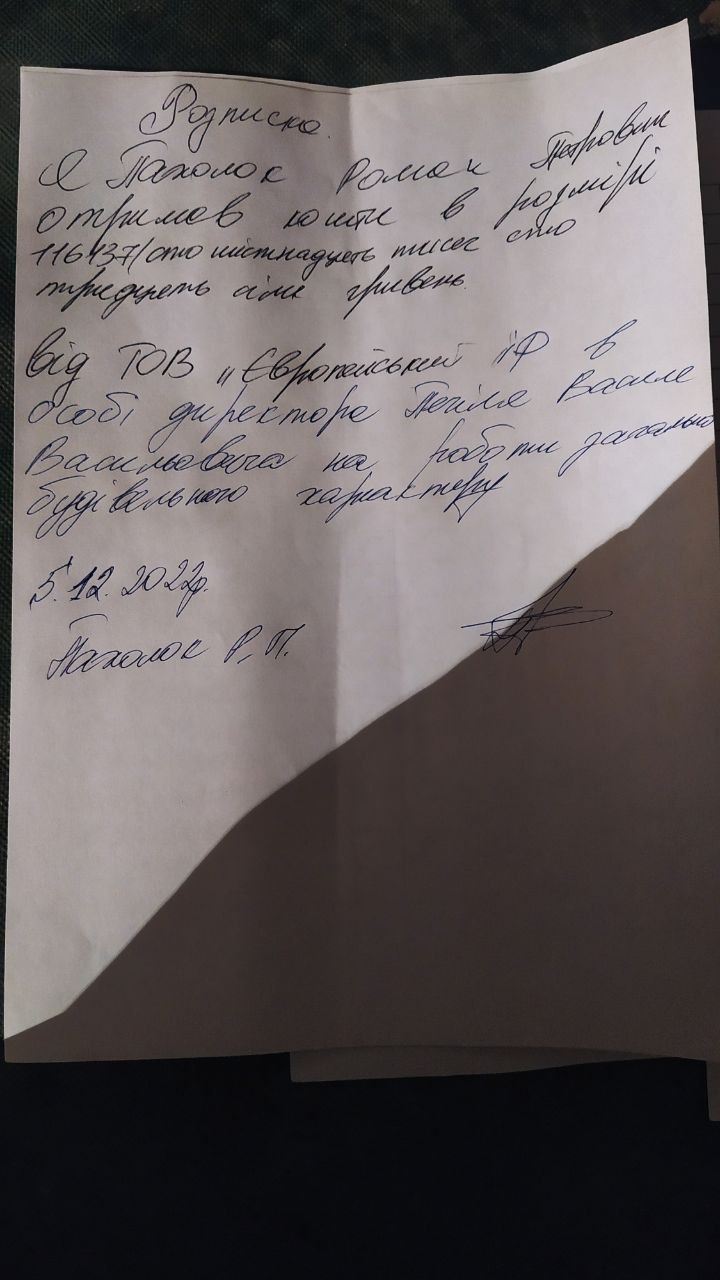 Розписка.
Я Пахолок Роман Петрович
отримав кошти в розмірі
116137/сто шістнадцять тисяч сто
тридцять сім гривень.
від ТОВ „Європейський "Ф в
особі директора Василя
Васильовича на роботи загально
будівельного характеру
5.12.2022р.
Пахолок Р.П.